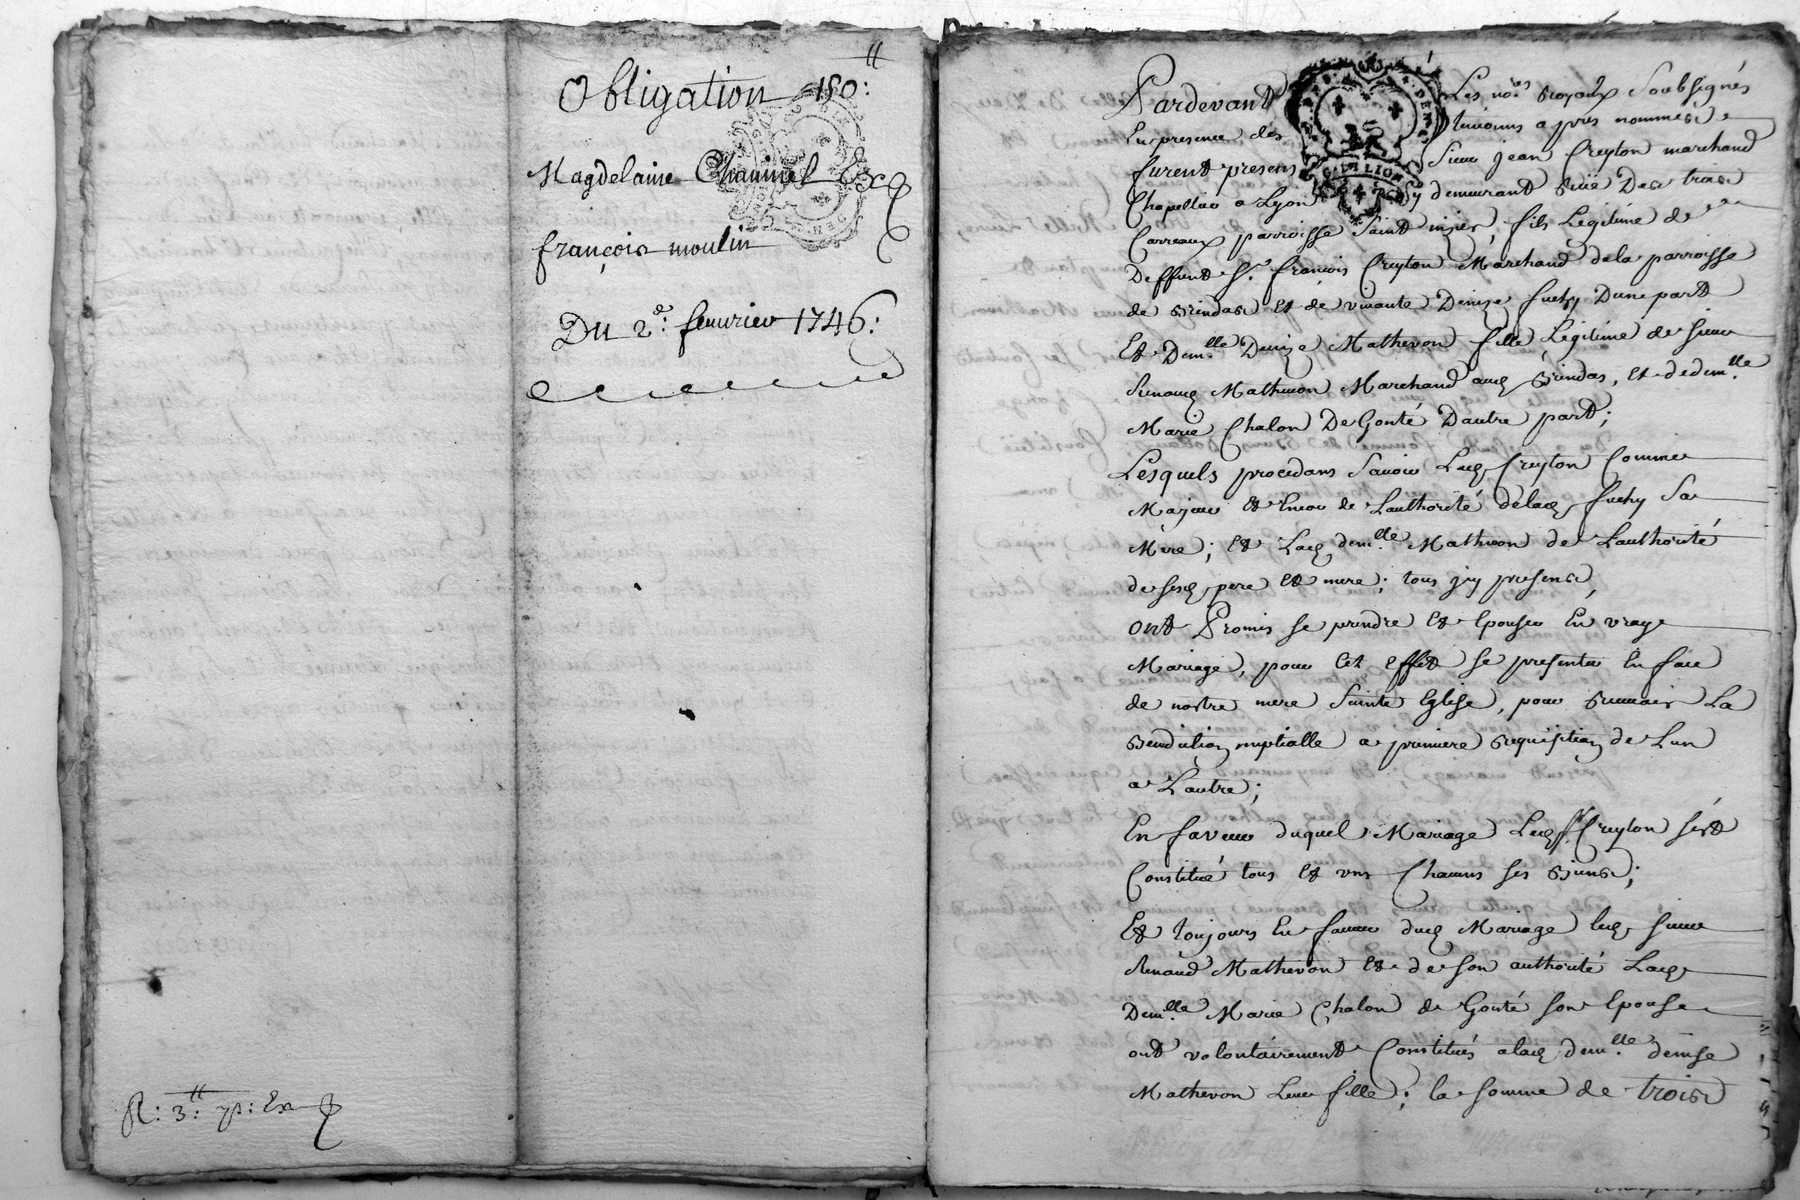 Obligation 180:ᵗᵗ
Magdelaine Chauvet Ex
françois moulin
Du 2.ᵉ feuvrier 1746:
R: 3:ᵗᵗ Ex
Pardevant Les no.ʳᵉˢ royaux Soubsignés
En presence des temoins apres nommés
furent presens Sieur jean Creyton marchand
Chapellier a Lyon y demeurant ruë Des trois
Carreaux parroisse Saint nizier, fils Legitime de
Deffunt S.ʳ françois Creyton Marchand de la parroisse
de Brindas et de vivante Denize fuchy Dune part
Et Dem.ˡˡᵉ Denize Mathevon fille Legitime de sieur
Renaud Mathevon Marchand aud Brindas, et de dem.ˡˡᵉ
Marie Chalon De Gonté Dautre part;
Lesquels procedans Savoir Led Creyton Comme
Majeur et Encor de Lauthorité delad fuchy Sa
Mere; et Lad dem.ˡˡᵉ Mathevon de Lauthorité
de sesd pere et mere; tous icy presens
ont Promis se prendre et Epouser En vraye
Mariage, pour cet effet se presenter En face
de nostre mere Sainte Eglise, pour recevoir La
Benediction nuptialle a premiere requisition de Lun
a Lautre;
En faveur duquel Mariage Led S.ʳ Creyton sest
Constitué tous et uns Chacuns ses Biens;
Et toujours En faveur dud Mariage led sieur
Renaud Mathevon et de son authorité Lad
Dem.ˡˡᵉ Marie Chalon de Gonté son Epouse
ont volontairement Constitués alad dem.ˡˡᵉ denise
Mathevon Leur fille; la somme de trois